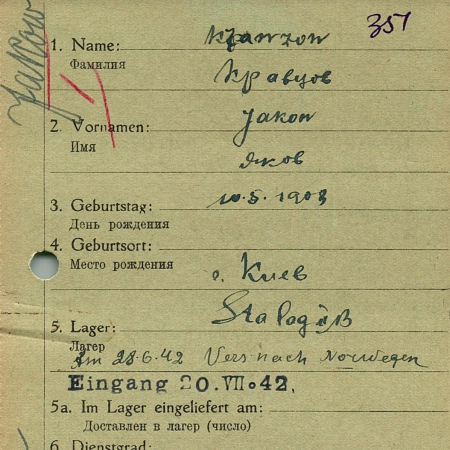 351
Jakow
1. Name:
Фамилия
Кравцов
2. Vornamen:
Jakow
Имя
Яков
3. Geburtstag: 10.5.1903
День рождения
4. Geburtsort:
Место рождения
г. Киев
5. Lager:
Лагерь
Am 28.6.42 Vers nach Norwegen
Eingang 20.VII.42.
5a. Im Lager eingeliefert am:
Доставлен в лагерь (число)
6. Dienstgrad: